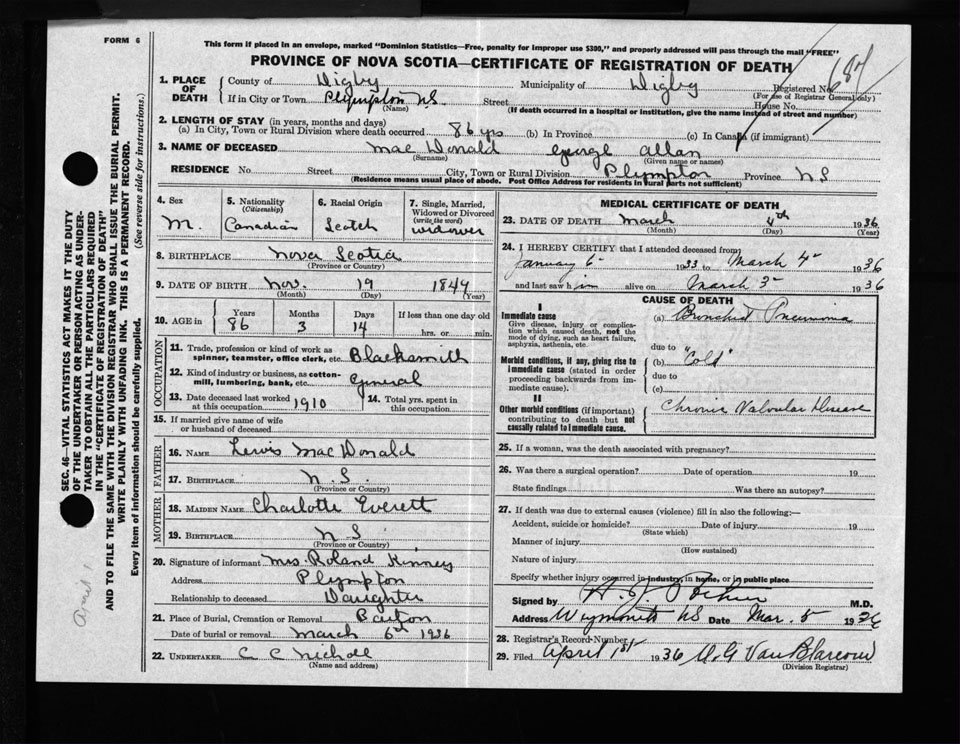 FORM 6
This form if placed in an envelope, marked "Dominion Statistics—Free, penalty for improper use $300," and properly addressed will pass through the mail "FREE"
PROVINCE OF NOVA SCOTIA—CERTIFICATE OF REGISTRATION OF DEATH
687
1. PLACE OF DEATH
County of Digby Municipality of Digby Registered No.
(For use of Registrar General only)
If in City or Town Plympton N.S Street House No.
(Name) (If death occurred in a hospital or institution, give the name instead of street and number)
2. LENGTH OF STAY (in years, months and days)
(a) In City, Town or Rural Division where death occurred 86 yrs (b) In Province (c) In Canada (if immigrant)
3. NAME OF DECEASED Mac Donald George Allan
(Surname) (Given name or names)
RESIDENCE No. Street City, Town or Rural Division Plympton Province N.S
(Residence means usual place of abode. Post Office Address for residents in rural parts not sufficient)
4. Sex M.
5. Nationality (Citizenship) Canadian
6. Racial Origin Scotch
7. Single, Married, Widowed or Divorced (write the word) widower
8. BIRTHPLACE Nova Scotia
(Province or Country)
9. DATE OF BIRTH Nov. 19 1849
(Month) (Day) (Year)
10. AGE in Years Months Days If less than one day old
86 3 14 hrs. or min.
OCCUPATION
11. Trade, profession or kind of work as spinner, teamster, office clerk, etc. Blacksmith
12. Kind of industry or business, as cotton-mill, lumbering, bank, etc. General
13. Date deceased last worked at this occupation 1910
14. Total yrs. spent in this occupation
15. If married give name of wife or husband of deceased
FATHER
16. NAME Lewis Mac Donald
17. BIRTHPLACE N.S.
(Province or Country)
MOTHER
18. MAIDEN NAME Charlotte Everett
19. BIRTHPLACE N S
(Province or Country)
20. Signature of informant Mrs. Roland Kinney
Address Plympton
Relationship to deceased Daughter
21. Place of Burial, Cremation or Removal Barton
Date of burial or removal March 6th 1936
22. UNDERTAKER C C Nicholl
(Name and address)
MEDICAL CERTIFICATE OF DEATH
23. DATE OF DEATH March 4th 1936
(Month) (Day) (Year)
24. I HEREBY CERTIFY that I attended deceased from
January 6 1933 to March 4 1936
and last saw him alive on March 3 1936
CAUSE OF DEATH
I
Immediate cause
Give disease, injury or complication which caused death, not the mode of dying, such as heart failure, asphyxia, asthenia, etc.
(a) Bronchial Pneumonia
due to
Morbid conditions, if any, giving rise to immediate cause (stated in order proceeding backwards from immediate cause).
(b) "Cold"
due to
(c)
II
Other morbid conditions (if important) contributing to death but not causally related to immediate cause.
Chronic Valvular Disease
25. If a woman, was the death associated with pregnancy?
26. Was there a surgical operation? Date of operation 19
State findings Was there an autopsy?
27. If death was due to external causes (violence) fill in also the following:—
Accident, suicide or homicide? Date of injury 19
(State which)
Manner of injury
(How sustained)
Nature of injury
Specify whether injury occurred in industry, in home, or in public place
Signed by M.D.
Address Weymouth NS Date Mar. 5 1936
28. Registrar's Record Number
29. Filed April 1st 1936 Van Blarcom
(Division Registrar)
SEC. 46—VITAL STATISTICS ACT MAKES IT THE DUTY
OF THE UNDERTAKER OR PERSON ACTING AS UNDER-
TAKER TO OBTAIN ALL THE PARTICULARS REQUIRED
IN THE "CERTIFICATE OF REGISTRATION OF DEATH"
AND TO FILE THE SAME WITH THE DIVISION REGISTRAR WHO SHALL ISSUE THE BURIAL PERMIT.
WRITE PLAINLY WITH UNFADING INK. THIS IS A PERMANENT RECORD.
Every item of information should be carefully supplied. (See reverse side for instructions.)